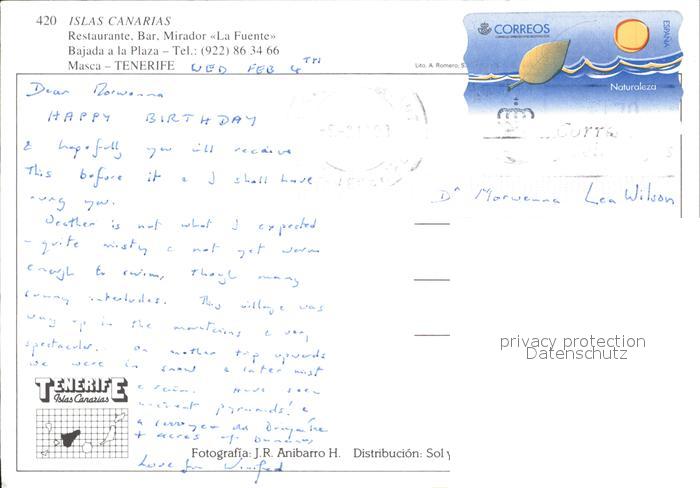 420 ISLAS CANARIAS
Restaurante, Bar, Mirador «La Fuente»
Bajada a la Plaza – Tel.: (922) 86 34 66
Masca – TENERIFE
WED FEB 4TH
Lito. A. Romero, S.
CORREOS
ESPAÑA
Naturaleza
Dear Morwenna
HAPPY BIRTHDAY
& hopefully you will receive
this before it & I shall have
rung you.
Weather is not what I expected
– quite misty & not yet warm
enough to swim, though many
sunny interludes. This village was
way up in the mountains & very
spectacular. On another trip upwards
we were in snow & later mist
& rain. Have seen
ancient pyramids! &
a old
+ acres of bananas
Love from Winifred
Dr Morwenna Lea Wilson
privacy protection
Datenschutz
TENERIFE
Islas Canarias
Fotografía: J.R. Anibarro H. Distribución: Sol y